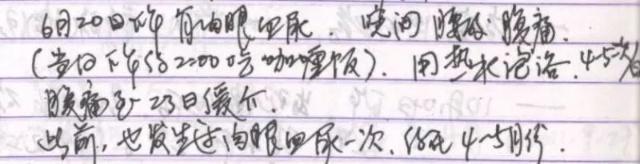 6月20日下午 有肉眼血尿. 晚间 腰及腹痛.
(当日下午约2:00吃咖喱饭). 用热水泡浴. 4-5次/日
腹痛至23日缓介.
此前, 也发生过肉眼血尿一次. 约在4~5月份.